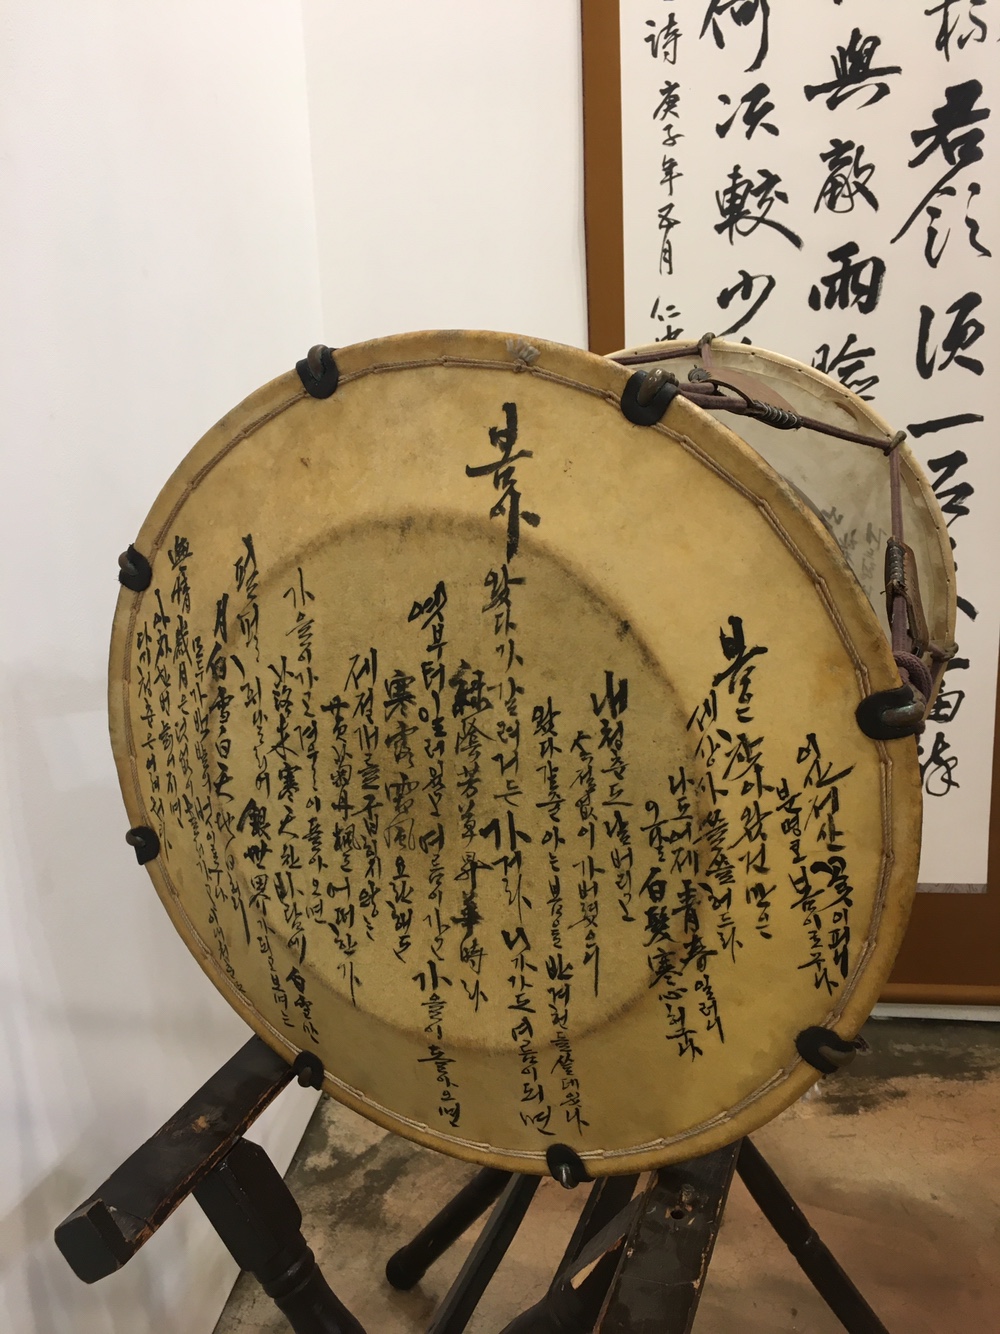 君領須一百
與敵雨臉
何次較少
詩 庚子年 五月 仁
이산저산 꽃이 피니
분명코 봄이로구나
봄은 찾아 왔건만은
세상사 쓸쓸허드라
나도 어제 青春일러니
오날 白髮寒心허구나
내청춘도 날버리고
속절없이 가버렸으니
왔다갈줄 아는봄을 반겨헌들 쓸데있나
봄아 왔다가 갈려거든 가거라 니가가도 여름이 되면
綠陰芳草昇華時나
옛부터 일러있고 여름이 가고 가을이 돌아오면
寒露霜風 요란해도
제절개를 굽히지 않는
黃菊丹楓은 어떠한가
가을이 가고 겨울이 돌아오면
落木寒天 찬바람에 白雪만
펄펄 휘날리어 銀世界가 되고보면는
月白雪白天地白허니
모두가 백발의 벗이로구나
無情歲月은 덧없이 흘러가고
아차한번 늙어지면
다시청춘은 어려워라